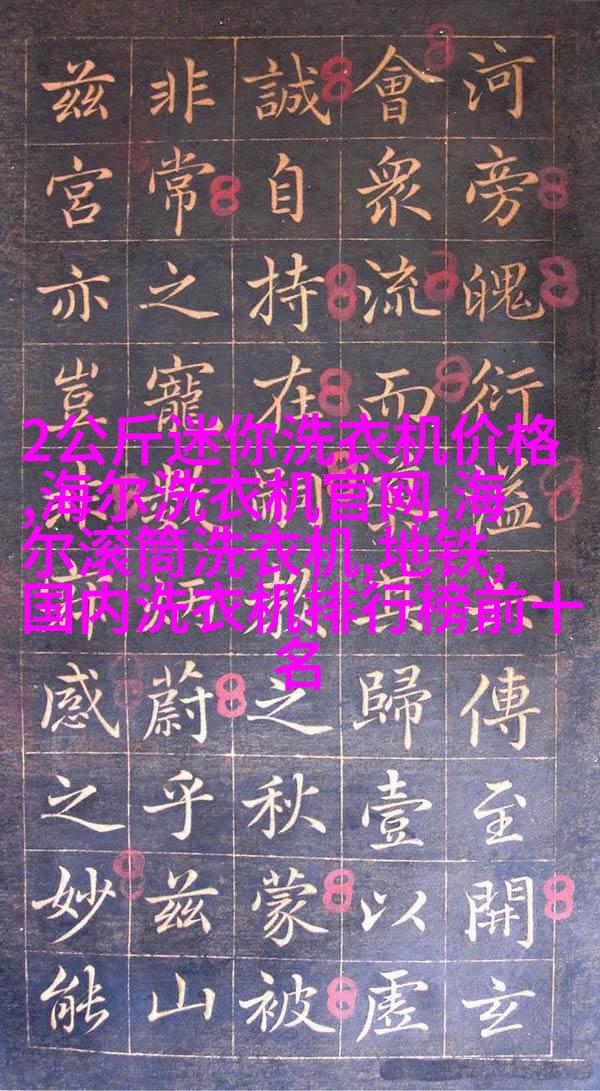 河旁魄衍溢傳至開玄
會衆流而歸壹以虛
誠自持在之秋蒙被
非常之寵數蔚乎兹山
兹宮亦豈感之妙能
2公斤迷你洗衣机价格
,海尔洗衣机官网,海
尔滚筒洗衣机,地铁,
国内洗衣机排行榜前十
名